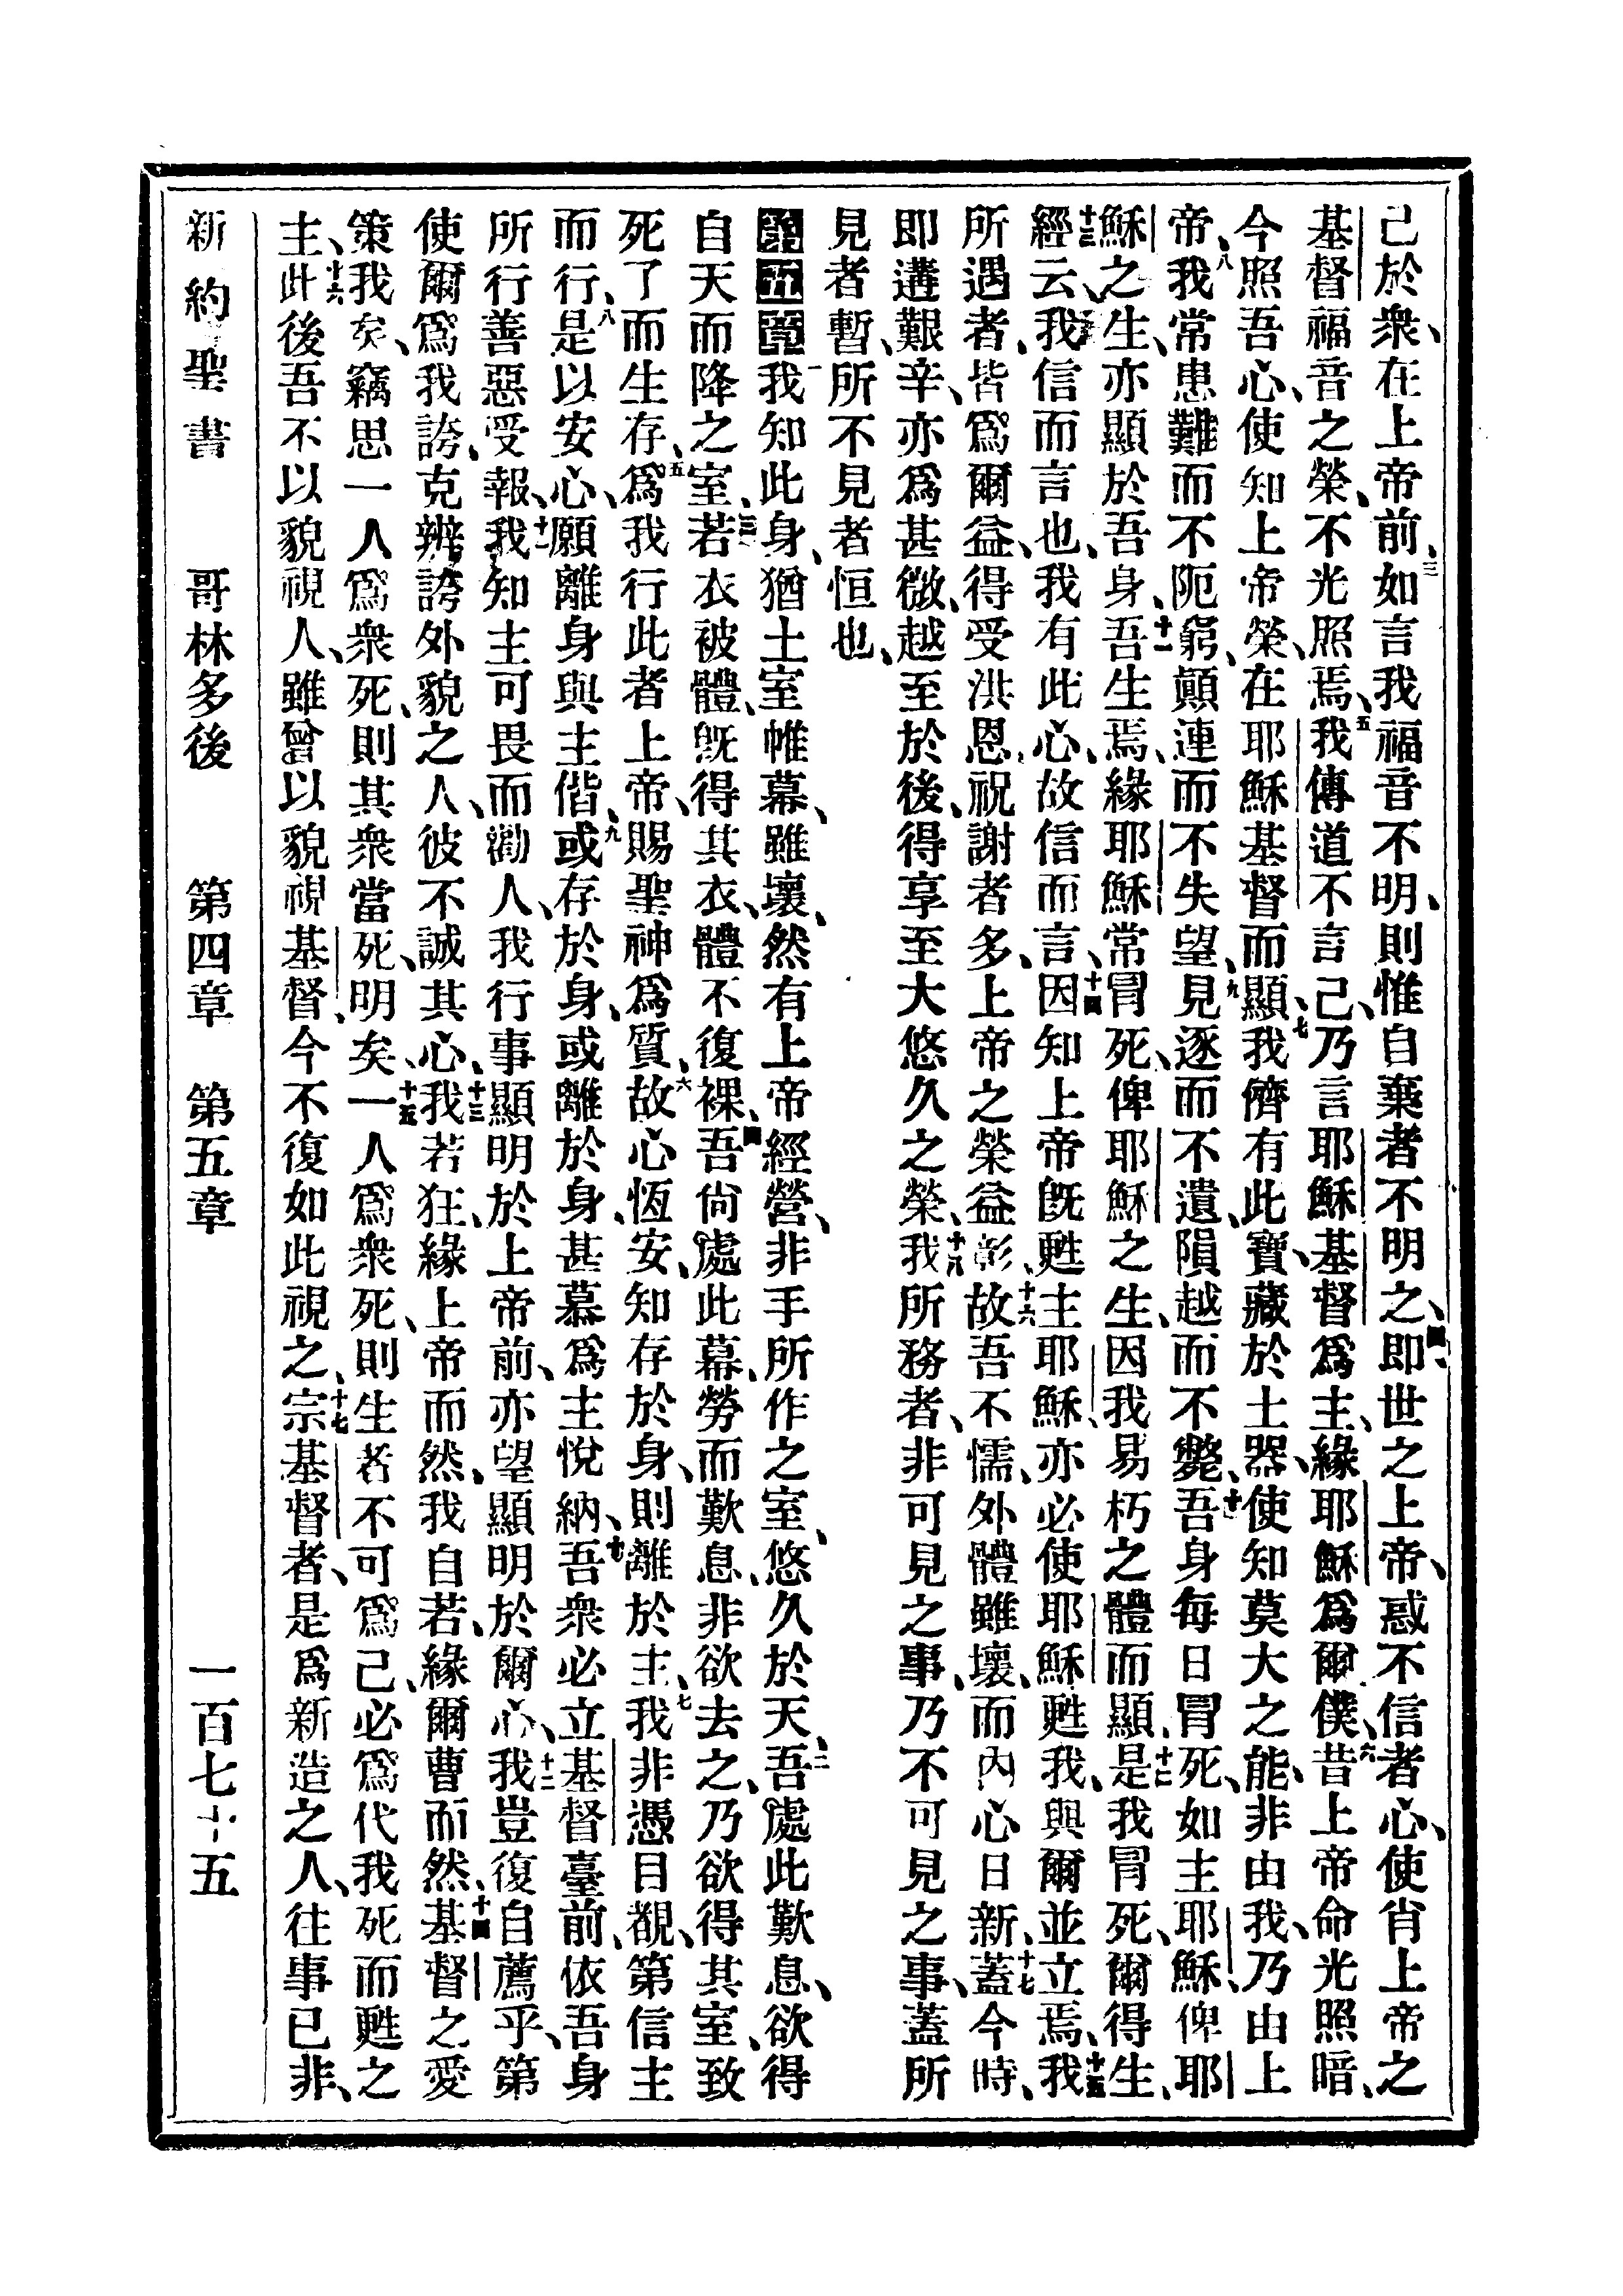 己於衆、在上帝前、三如言我福音不明、則惟自棄者不明之、四即世之上帝、惑不信者心、使肖上帝之
基督福音之榮、不光照焉、五我傳道不言己、乃言耶穌基督爲主、緣耶穌爲爾僕、六昔上帝命光照暗、
今照吾心、使知上帝榮、在耶穌基督而顯、七我儕有此寶、藏於土器、使知莫大之能、非由我、乃由上
帝、八我常患難而不阨窮、顚連而不失望、九見逐而不遺、隕越而不斃、十吾身每日冒死、如主耶穌、俾耶
穌之生、亦顯於吾身、十一吾生焉、緣耶穌常冒死、俾耶穌之生、因我易朽之體而顯、十二是我冒死、爾得生、
十三經云、我信而言也、我有此心、故信而言、十四因知上帝旣甦主耶穌、亦必使耶穌甦我、與爾並立焉、十五我
所遇者、皆爲爾益、得受洪恩、祝謝者多、上帝之榮益彰、十六故吾不懦、外體雖壞、而內心日新、十七蓋今時、
即遘艱辛、亦爲甚微、越至於後、得享至大悠久之榮、十八我所務者、非可見之事、乃不可見之事、蓋所
見者暫、所不見者恒也、
第五章一我知此身、猶土室帷幕、雖壞、然有上帝經營、非手所作之室、悠久於天、二吾處此歎息、欲得
自天而降之室、三若衣被體、旣得其衣、體不復裸、四吾尙處此幕、勞而歎息、非欲去之、乃欲得其室、致
死了而生存、五爲我行此者上帝、賜聖神爲質、六故心恆安、知存於身、則離於主、七我非憑目覩、第信主
而行、八是以安心、願離身與主偕、九或存於身、或離於身、甚慕爲主悅納、十吾衆必立基督臺前、依吾身
所行善惡受報、十一我知主可畏而勸人、我行事顯明於上帝前、亦望顯明於爾心、十二我豈復自薦乎、第
使爾爲我誇、克辨誇外貌之人、彼不誠其心、十三我若狂、緣上帝而然、我自若、緣爾曹而然、十四基督之愛
策我矣、竊思一人爲衆死、則其衆當死、明矣、十五一人爲衆死、則生者不可爲己、必爲代我死而甦之
主、十六此後吾不以貌視人、雖曾以貌視基督、今不復如此視之、十七宗基督者、是爲新造之人、往事已非、
新約聖書　哥林多後　第四章　第五章　一百七十五